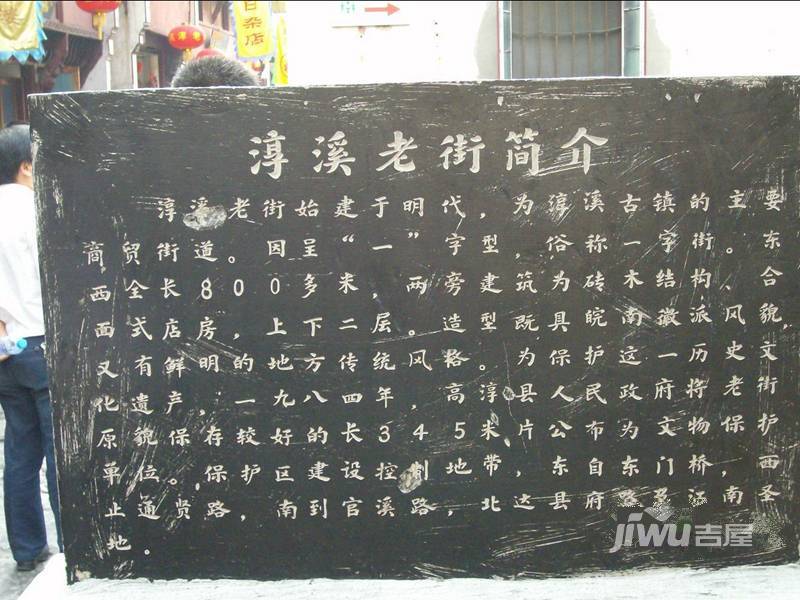 日杂店
淳溪老街简介
淳溪老街始建于明代，为淳溪古镇的主要
商贸街道。因呈“一”字型，俗称一字街。东
西全长800多米，两旁建筑为砖木结构、合
面式店房，上下二层。造型既具皖南徽派风貌，
又有鲜明的地方传统风格。为保护这一历史文
化遗产，一九八四年，高淳县人民政府将老街
原貌保存较好的长345米片公布为文物保护
单位。保护区建设控制地带，东自东门桥，西
止通贤路，南到官溪路，北达县府路及汤南圣
地。
JiWU吉屋